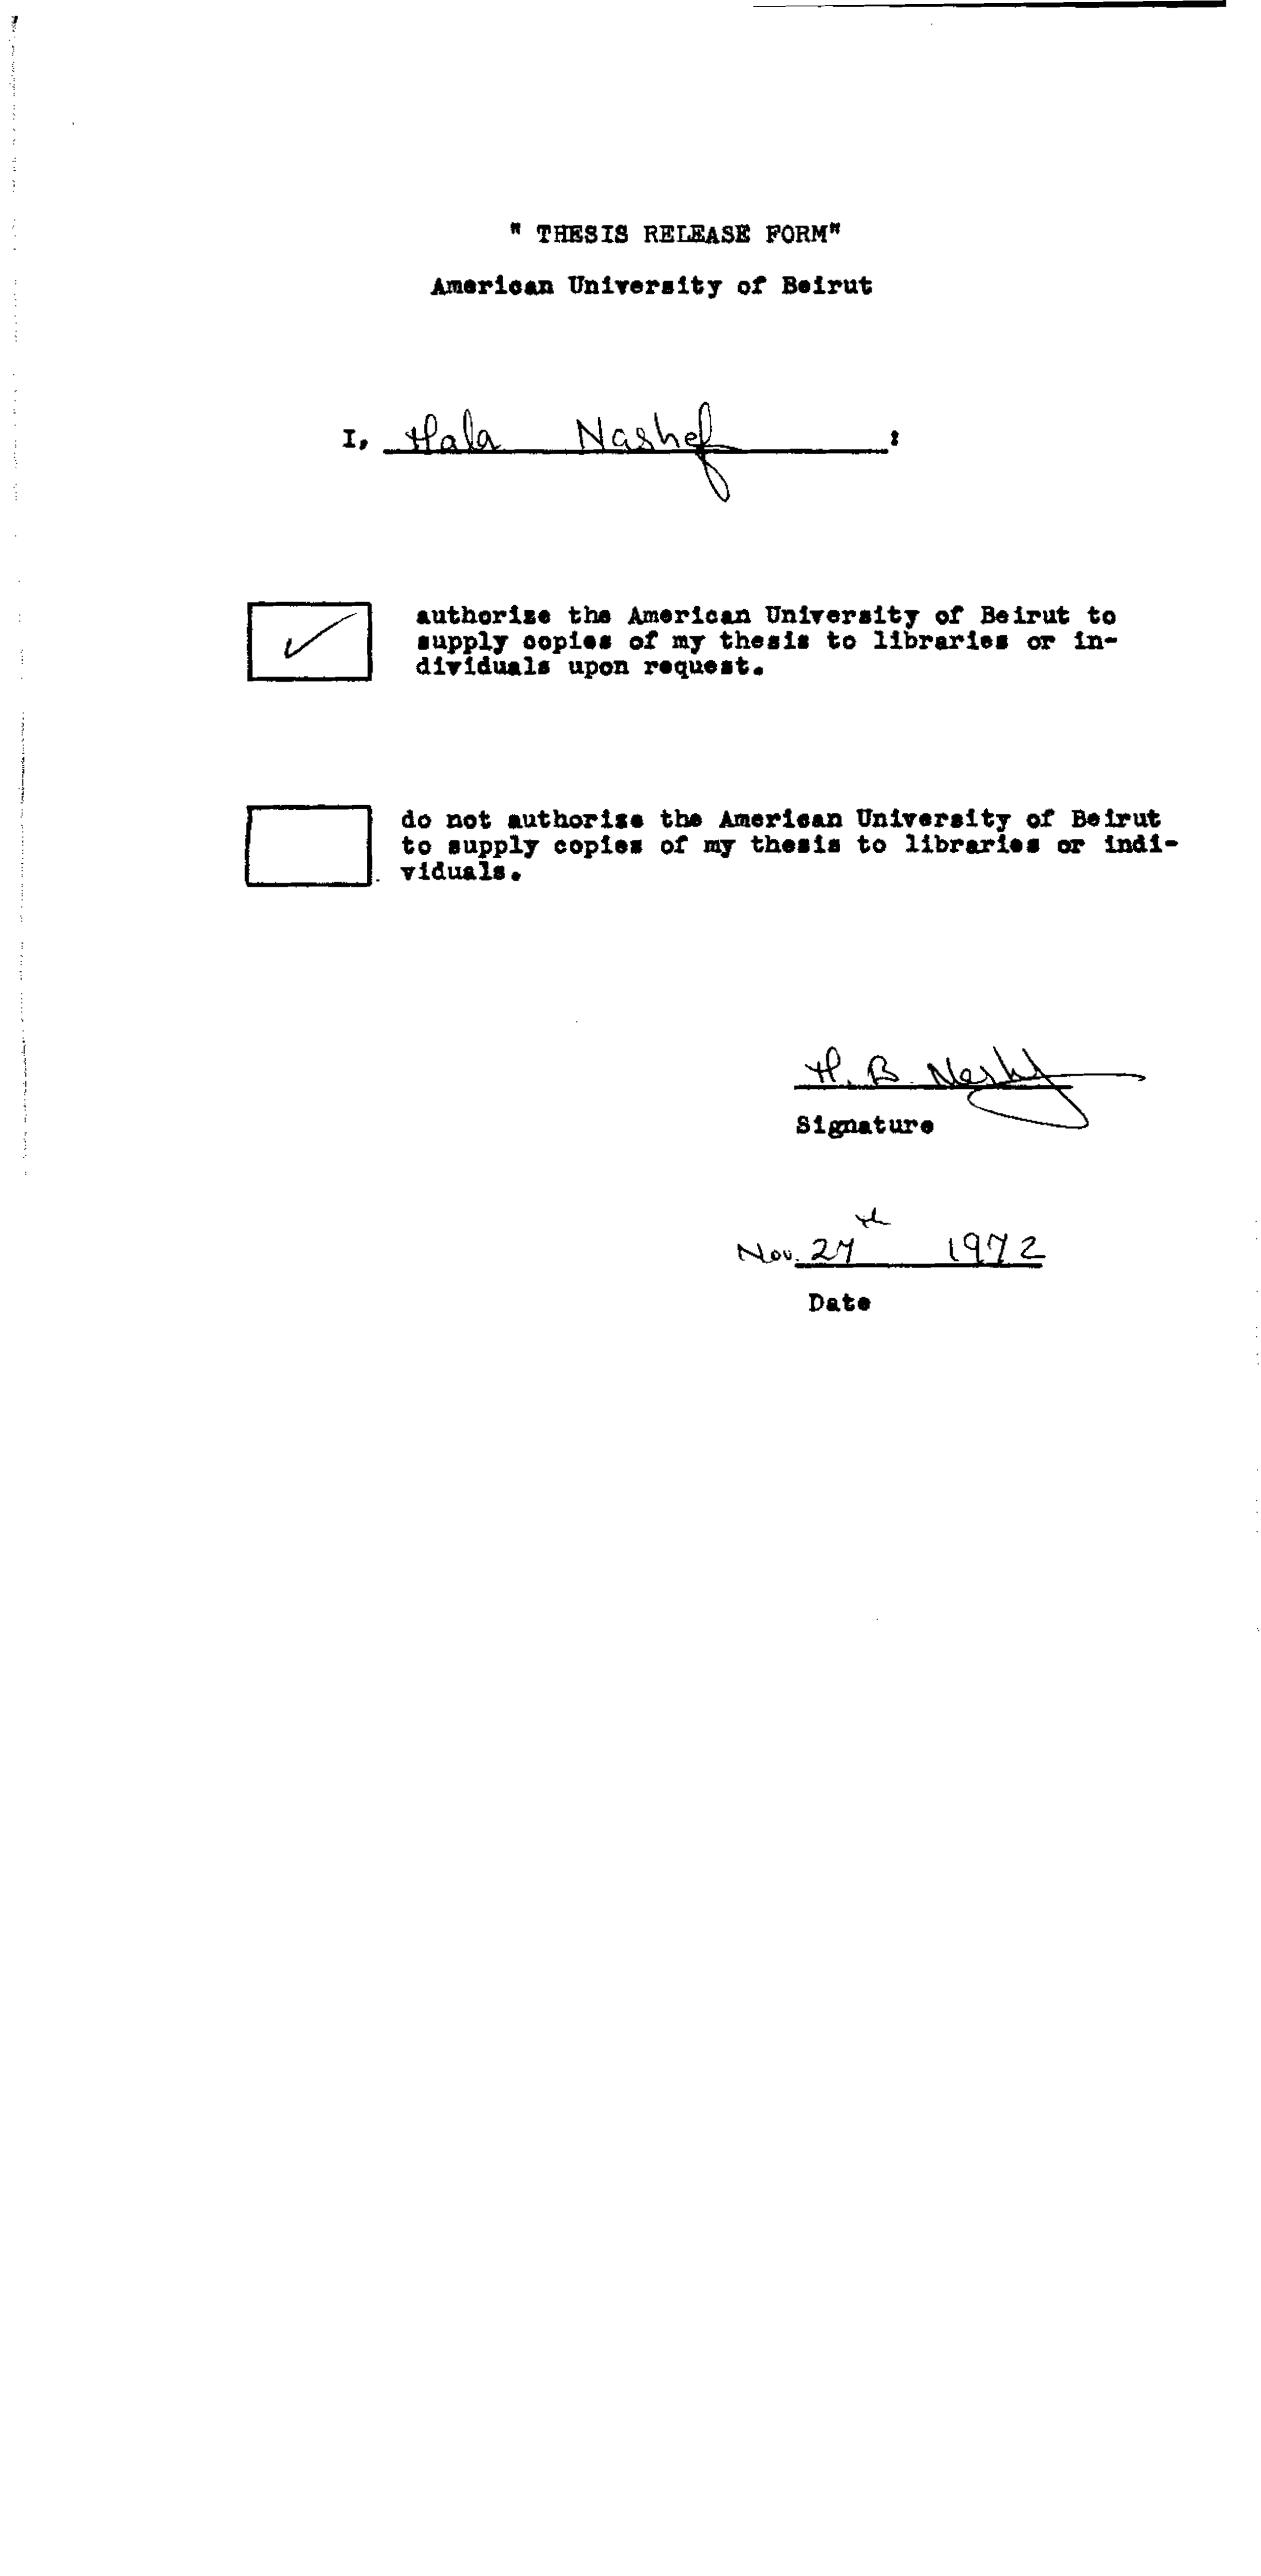 " THESIS RELEASE FORM"
American University of Beirut
I, Hala Nashef :
✓ authorize the American University of Beirut to
supply copies of my thesis to libraries or in-
dividuals upon request.
do not authorize the American University of Beirut
to supply copies of my thesis to libraries or indi-
viduals.
H. B. Nashef
Signature
Nov. 27th 1972
Date